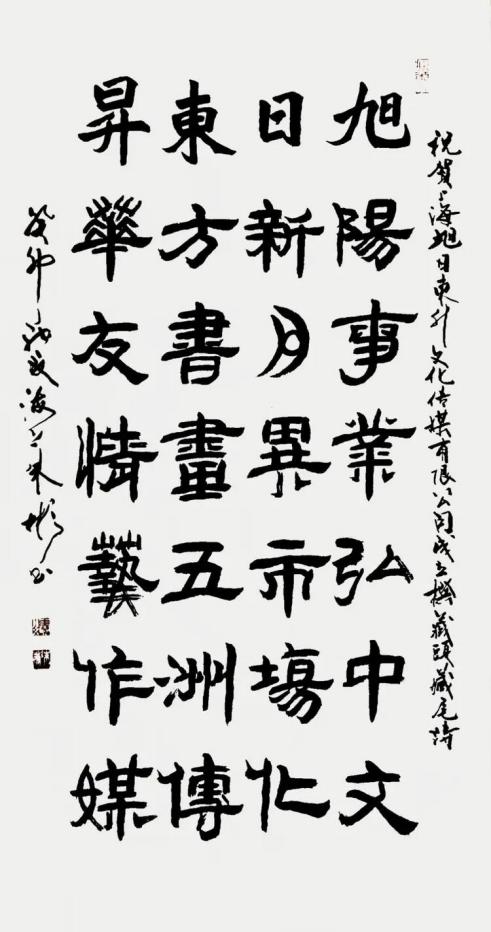 祝賀上海旭日東升文化传媒有限公司成立撰藏頭藏尾詩
旭陽事業弘中文
日新月異市場化
東方書畫五洲傳
昇華友情藝作媒
癸卯海上朱彬书